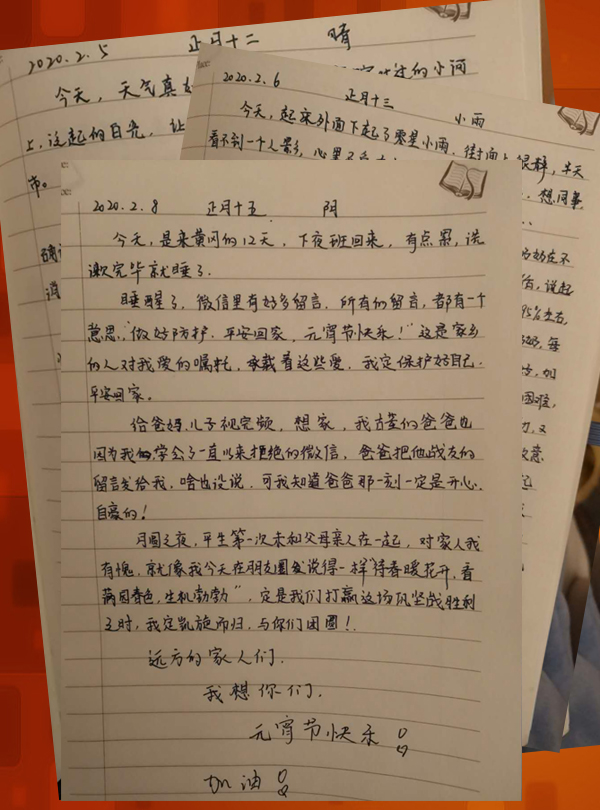 2020.2.5 正月十二 晴
今天，天气真好
的小河
上，泛起的日光，让
市。
2020.2.6 正月十三 小雨
今天，起床外面下起了零星小雨，街面上很静，半天
看不到一个人影，心里
想同事
2020.2.8 正月十五 阴
今天，是来黄冈的12天，下夜班回来，有点累，洗
漱完毕就睡了.
睡醒了，微信里有好多留言，所有的留言，都有一个
意思，"做好防护，平安回家，元宵节快乐！"这是家乡
的人对我爱的嘱托，承载着这些爱，我定保护好自己.
平安回家。
给爸妈、儿子视完频，想家，我古董的爸爸也
因为我的学会了一直以来拒绝的微信，爸爸把他战友的
留言发给我，啥也没说，可我知道爸爸那一刻一定是开心，
自豪的！
月圆之夜，平生第一次未和父母亲人在一起，对家人我
有愧，就像我今天在朋友圈发说得一样"待春暖花开，看
满园春色，生机勃勃"，定是我们打赢这场攻坚战胜利
之时，我定凯旋而归，与你们团圆！.
远方的家人们.
我想你们.
元宵节快乐！
加油！